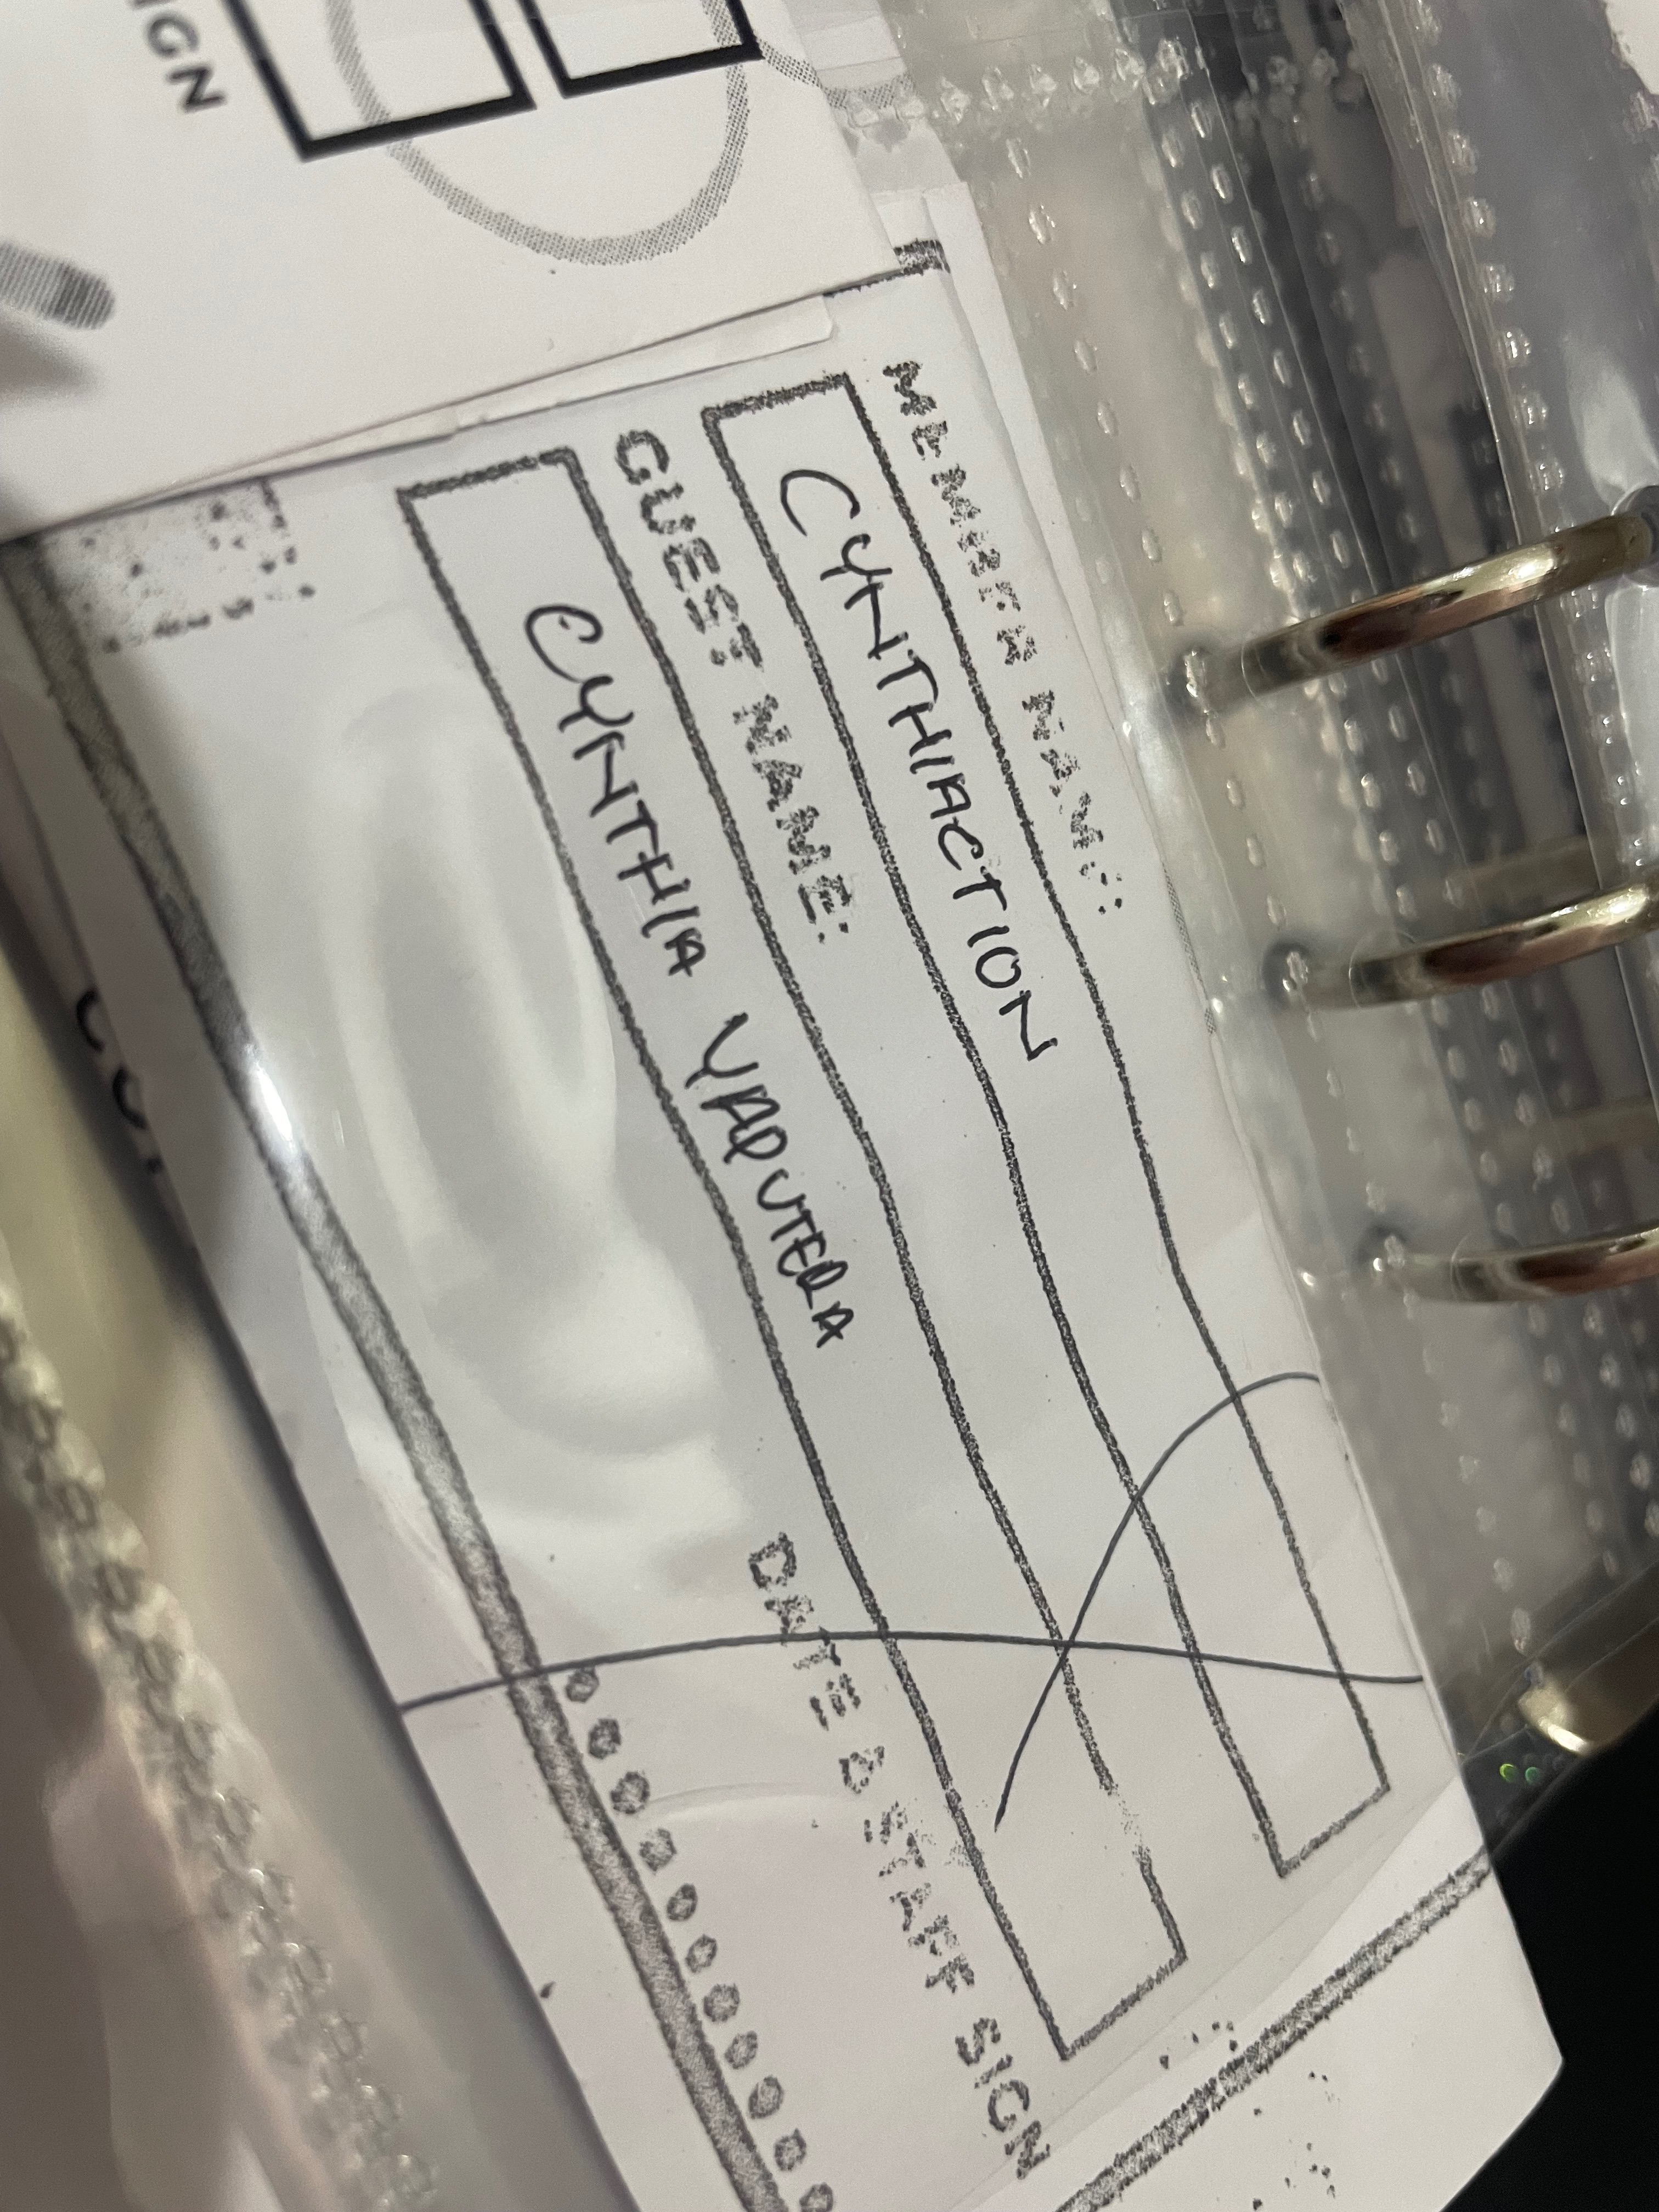 IGN
MEMBER NAME:
CYNTHIACTION
GUEST NAME:
CYNTHIA YAPUTERA
DATE & STAFF SIGN